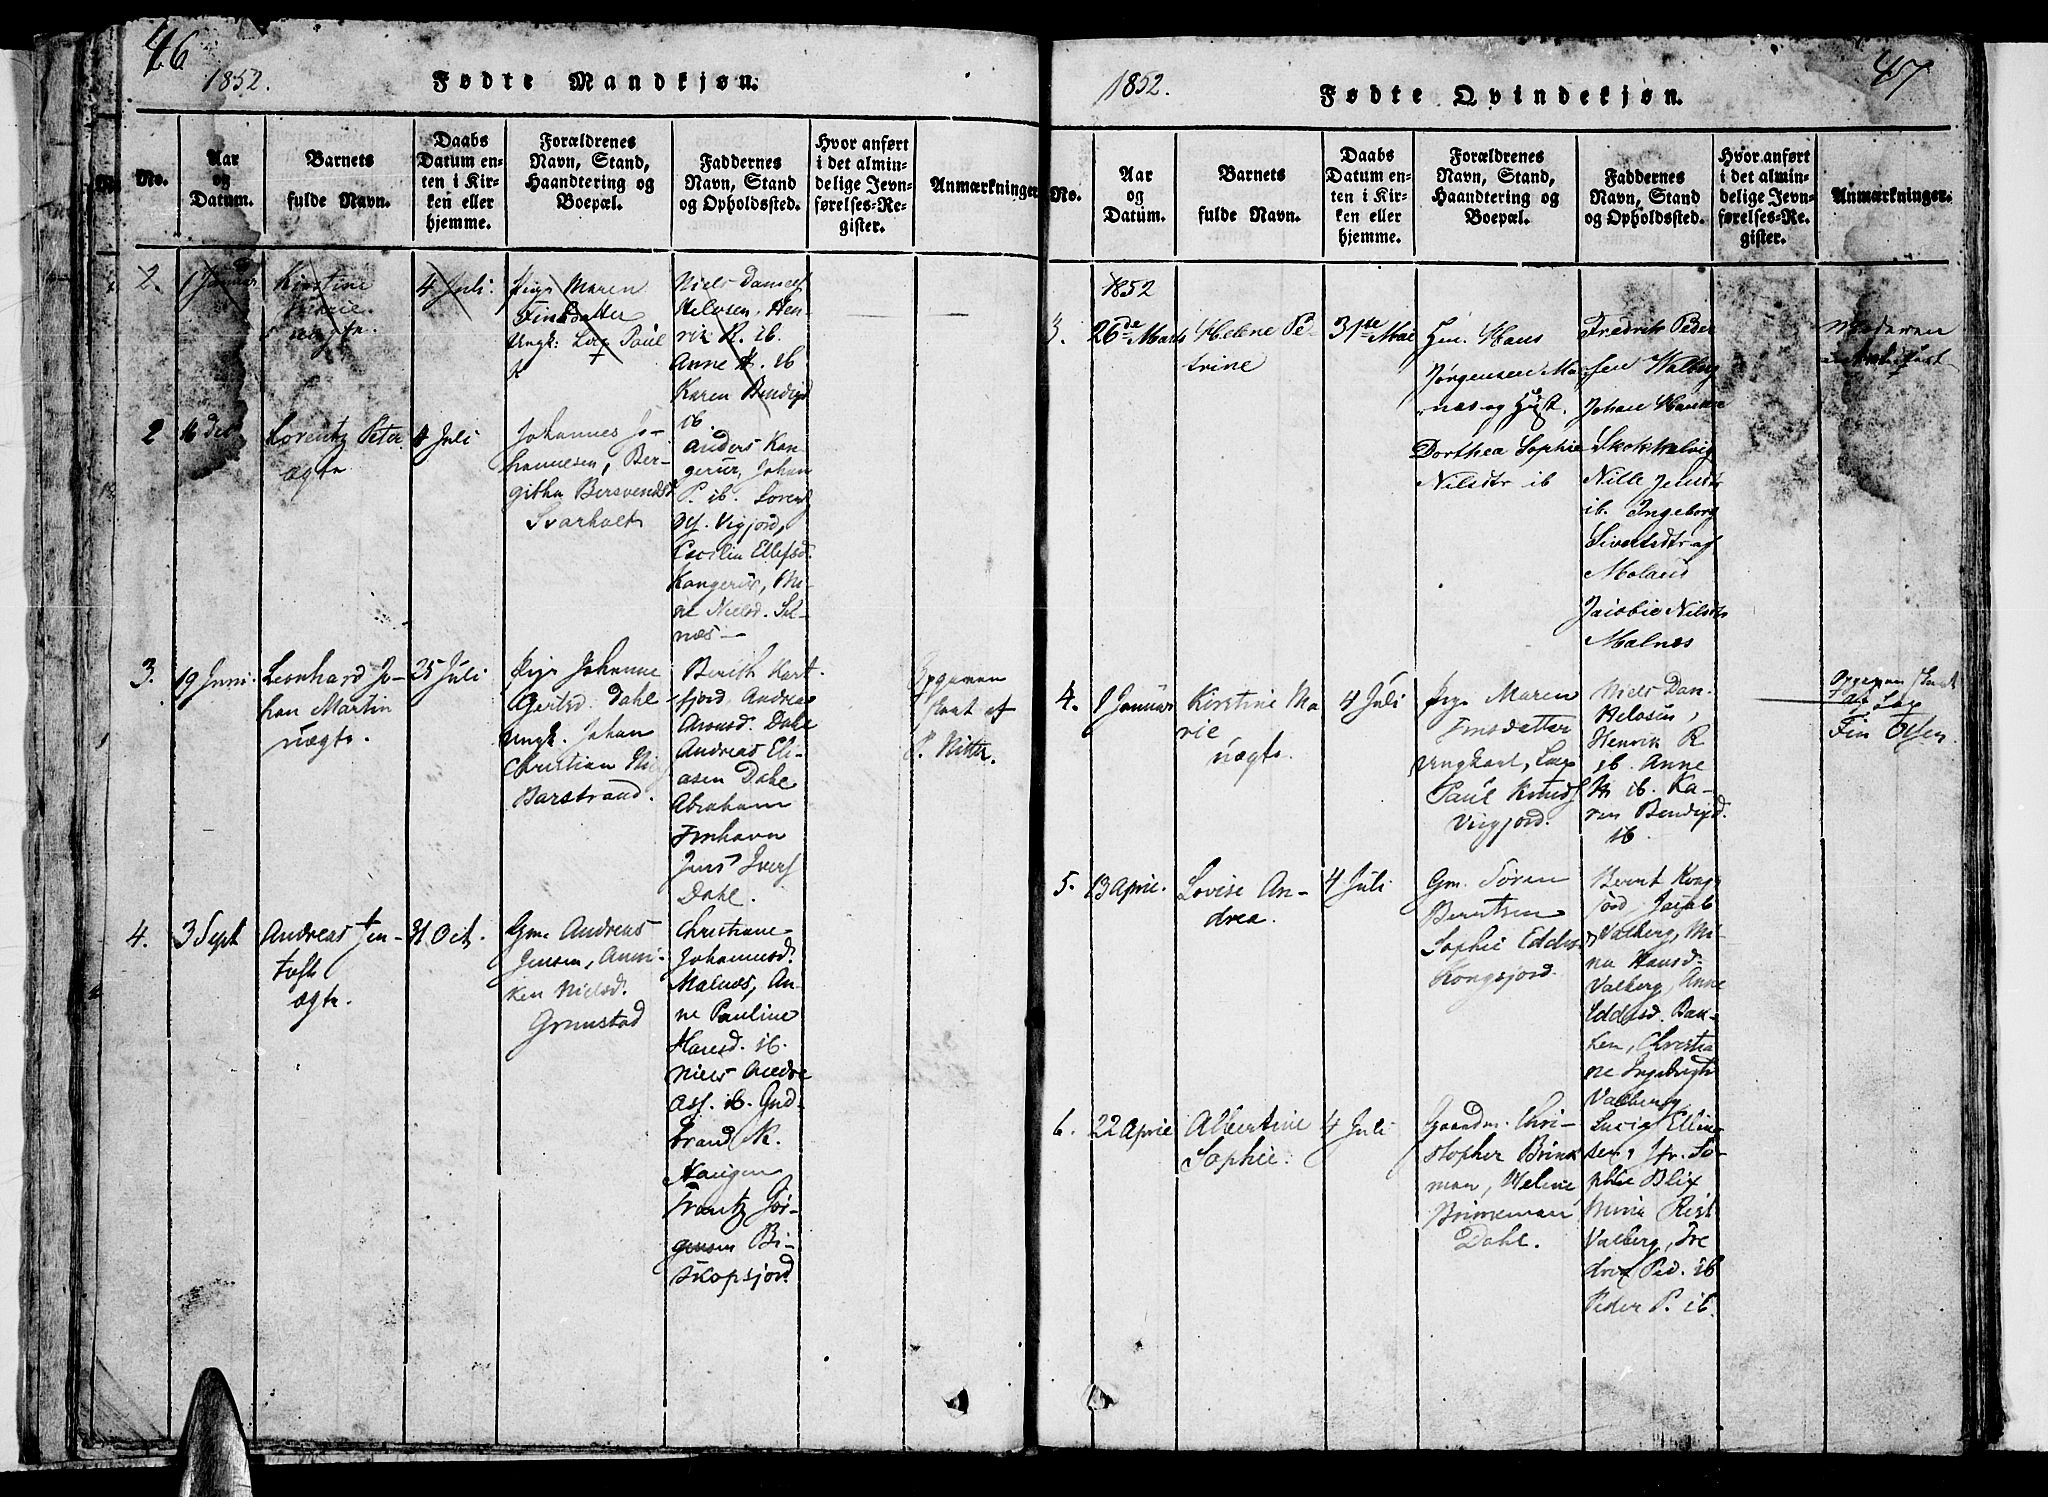 46
1852.
Fødte Mandkjøn.
No.
Aar
og
Datum.
Barnets
fulde Navn.
Daabs
Datum en-
ten i Kir-
ken eller
hjemme.
Forældrenes
Navn, Stand,
Haandtering og
Boepæl.
Faddernes
Navn, Stand
og Opholdssted.
Hvor anført
i det almin-
delige Jevn-
førelses-Re-
gister.
Anmærkninger.
2.
1 Januar
Kirstine
Marie
4 Juli
Pige Maren
Finsdatter
Ungk: Lap Paul
K
Niels Daniels
Henrik R. ib.
Anne ib
Karen Bendigd
ib.
2
16 Dec
Lorentz Peter
ægte
4 Juli
Johannes Jo-
hannesen, Ber-
githa Bersvends
Svarholt
Anders Kon-
gerur, Johan
P. ib. Lorent
Vigjord,
Cecilia Ellefsd.
Kongerur,
ne Nielsd.
næs
3.
19 Juni.
Leonhard Jo-
han Martin
uægte.
25 Juli
Pige Johanne
Gertsd. Dahl
Ungk. Johan
Christian
Barstrand.
Berith Hart-
fjord, Andreas
Dahl
Andreas Eli-
asen Dahl
Abraham
Finhavn
Jens Ivers
Dahl.
Opgaven
skant af
P. Ritter.
4.
3 Sept
Andreas Jen-
toft
ægte.
31 Oct.
Gm. Andreas
Jensen, Anni-
ken Nielsd.
Grunstad
Christiane
Johannesd.
Malnæs, An-
ne Pauline
Hansd. ib.
Niels Andre-
asf. ib. Gud-
brand N.
Haugen
Frantz Jør-
gensen Bi-
skopsjord
1852.
Fødte Qvindekjøn.
47
No.
Aar
og
Datum.
Barnets
fulde Navn.
Daabs
Datum en-
ten i Kir-
ken eller
hjemme.
Forældrenes
Navn, Stand,
Haandtering og
Boepæl.
Faddernes
Navn, Stand
og Opholdssted.
Hvor anført
i det almin-
delige Jevn-
førelses-Re-
gister.
Anmærkninger.
1852
3.
26de Marts
Helene Pe-
trine
31te Mai
Hans
Jørgensen Ma-
næs og Hust.
Dorthea Sophie
Nilsdtr ib
Fredrik Peder
sen Walberg
Johan Hansen
Skokkelvig
Nille Jensdtr
ib. Ingeborg
Sivertsdtr af
Molund
Jacobie Nilsdtr
Malnæs
4.
1 Januar
Kirstine Ma
rie
uægte.
4 Juli
Pige Maren
Finsdatter
Ungkarl, Lap
Paul Knuds
Viigjord.
Niels Dan-
Henrik R
ib. Anne
H ib. Ka-
ren Bendigd.
ib.
Opgaven skant
af Lap
Fin Olsen
5.
13 April.
Lovise An-
drea.
4 Juli
Gm. Søren
Berntsen
Sophie
Kongsjord.
Bernt Kong-
sjord, Jacob
Valberg, Mi-
na Hansd.
Valberg, Anne
Christia
ne Ingebrigts
Valberg
6.
22 April
Albertine
Sophie.
4 Juli
Gaardm. Chri-
stopher Brink
man, Heline
Brinneman
Dahl.
Lucia Elline
sen, Jfr. So-
phie Blix
Mina Rist
Valberg, Fre
drix Ped. ib
Peder P. ib.